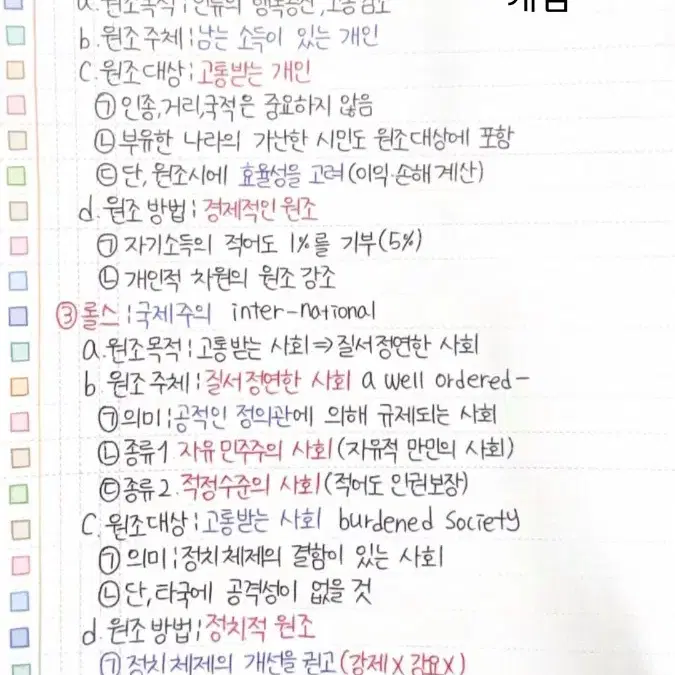 a. 원조목적 : 인류의 행복증진, 고통감소
b. 원조주체 : 남는 소득이 있는 개인
C. 원조대상 : 고통받는 개인
㉠ 인종,거리,국적은 중요하지 않음
㉡ 부유한 나라의 가난한 시민도 원조대상에 포함
㉢ 단, 원조시에 효율성을 고려(이익·손해계산)
d. 원조 방법 : 경제적인 원조
㉠ 자기소득의 적어도 1%를 기부(5%)
㉡ 개인적 차원의 원조 강조
③ 롤스 : 국제주의 inter-national
a. 원조목적 : 고통받는 사회 ⇒ 질서정연한 사회
b 원조주체 : 질서정연한 사회 a well ordered-
㉠ 의미 : 공적인 정의관에 의해 규제되는 사회
㉡ 종류1. 자유민주주의 사회(자유적 만민의 사회)
㉢ 종류2. 적정수준의 사회(적어도 인권보장)
C. 원조대상 : 고통받는 사회 burdened Society
㉠ 의미 : 정치체제의 결함이 있는 사회
㉡ 단, 타국에 공격성이 없을 것
d. 원조 방법 : 정치적 원조
㉠ 정치체제의 개선을 권고(강제X 강요X)